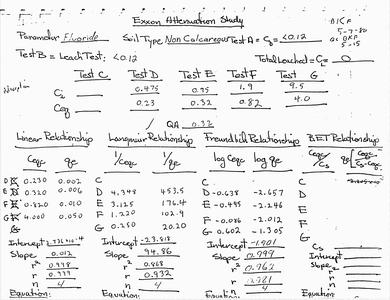 Exxon Attenuation Study
Parameter Fluoride Soil Type Non Calcareous Test A = C₀ = <0.12
5-7-80
5-15
Test B = Leach Test: <0.12 Total Leached = 0
Test C Test D Test E Test F Test G
0.475 0.95 1.9 9.5
Ceq 0.23 0.32 0.82 4.0
QA 0.32
Linear Relationship Langmuir Relationship Freundlich Relationship BET Relationship
Ceqc qe 1/Ceqc 1/qe log Ceqc log qe
C C C
0.230 0.002 D 4.348 453.5 D -0.638 -2.657 D
0.320 0.006 E 3.125 176.4 E -0.495 -2.246 E
0.820 0.010 F 1.220 102.9 F -0.086 -2.012 F
4.000 0.050 G 0.250 20.20 G 0.602 -1.305 G
Intercept Intercept -23.818 Intercept -1.901
Slope 0.012 Slope 94.86 Slope 0.999 Slope
r² 0.998 r² 0.868 r² 0.962 r²
r 0.999 r 0.932 r 0.981 r
n 4 n 4 n 4 n
Equation: Equation: Equation: Equation: